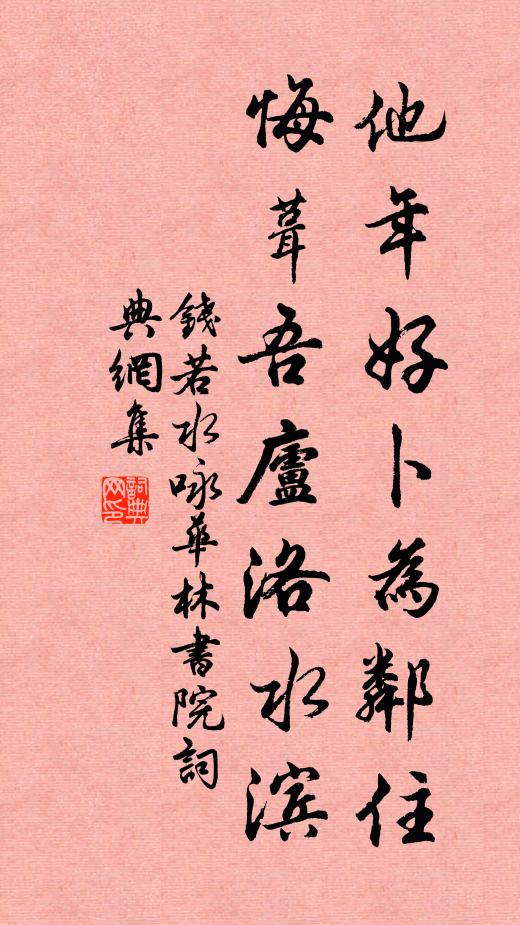 他年好卜為鄰住
悔葺吾廬洛水滨
錢若水咏華林書院詞
典網集
詞典
网印